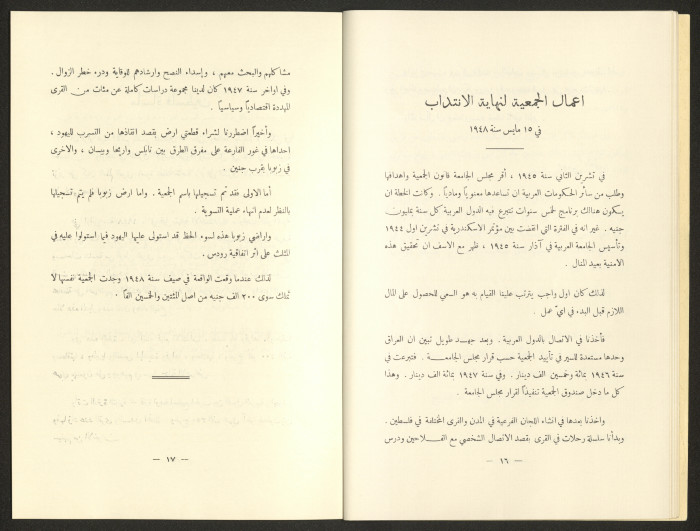 اعمال الجمعية لنهاية الانتداب
في ١٥ مايس سنة ١٩٤٨
في تشرين الثاني سنة ١٩٤٥ ، أقر مجلس الجامعة قانون الجمعية واهدافها
وطلب من سائر الحكومات العربية ان تساعدها معنوياً ومادياً . وكانت الخطة ان
يسكون هنالك برنامج لخمس سنوات تتبرع فيه الدول العربية كل سنة بمليون
جنيه . غير انه في الفترة التي انقضت بين مؤتمر الاسكندرية في تشرين اول ١٩٤٤
وتأسيس الجامعة العربية في آذار سنة ١٩٤٥ ، ظهر مع الاسف ان تحقيق هذه
الامنية بعيد المنال .
لذلك كان اول واجب يترتب علينا القيام به هو السعي للحصول على المال
اللازم قبل البدء في ايّ عمل .
فأخذنا في الاتصال بالدول العربية . وبعد جهد طويل تبين ان العراق
وحدها مستعدة للسير في تأييد الجمعية حسب قرار مجلس الجامعة . فتبرعت في
سنة ١٩٤٦ بمائة وخمسين الف دينار . وفي سنة ١٩٤٧ بمائة الف دينار . وهذا
كل ما دخل صندوق الجمعية تنفيذاً لقرار مجلس الجامعة .
واخذنا بعدها في انشاء اللجان الفرعية في المدن والقرى المختلفة في فلسطين .
وبدأنا سلسلة رحلات في القرى بقصد الاتصال الشخصي مع الفلاحين ودرس
— ١٦ —
مشاكلهم والبحث معهم ، وإسداء النصح وارشادهم للوقاية ودرء خطر الزوال .
وفي اواخر سنة ١٩٤٧ كان لدينا مجموعة دراسات كاملة عن مئات من القرى
المهددة اقتصادياً وسياسياً .
وأخيراً اضطررنا لشراء قطعتي ارض بقصد انقاذها من التسرب لليهود ،
احداها في غور الفارعة على مفرق الطرق بين نابلس واريحا وبيسان ، والاخرى
في زبوبا بقرب جنين .
أما الاولى فقد تم تسجيلها باسم الجمعية . واما ارض زبوبا فلم يتم تسجيلها
بالنظر لعدم انهاء عملية التسوية .
واراضي زبوبا هذه لسوء الحظ قد استولى عليها اليهود فيما استولوا عليه في
المثلث على اثر اتفاقية رودس .
لذلك عندما وقعت الواقعة في صيف سنة ١٩٤٨ وجدت الجمعية نفسها لا
تملك سوى ٢٠٠ الف جنيه من اصل المئتين والخمسين الفاً .
— ١٧ —